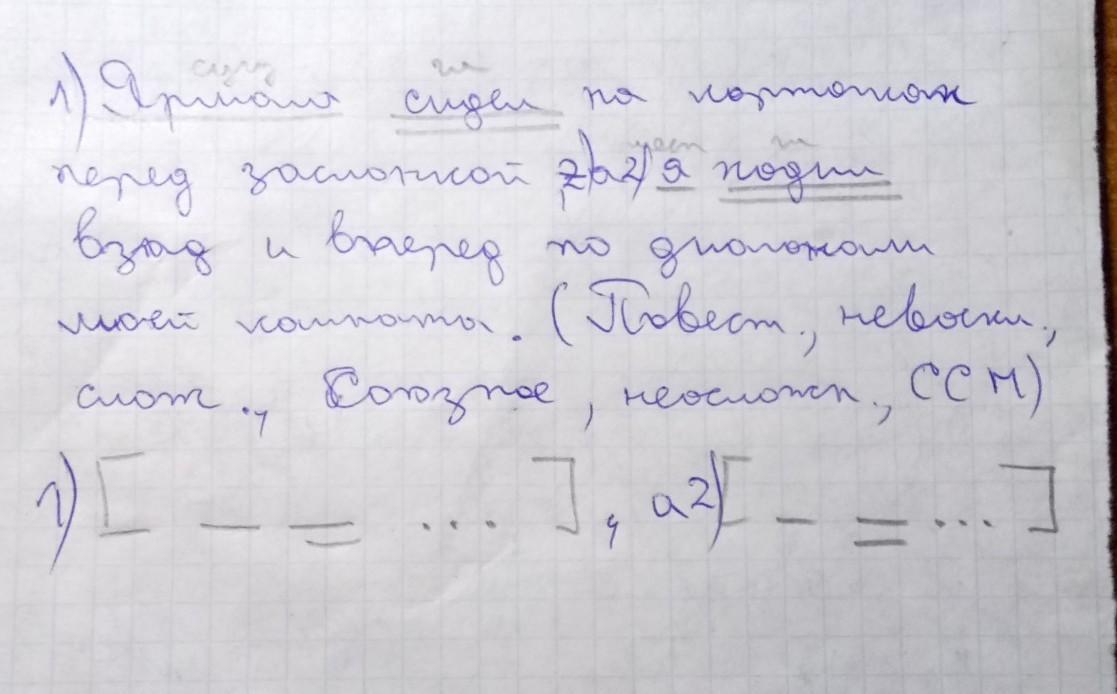 сущ гл
1) Ярмола сидел на корточках
мест гл
перед заслонкой, а 2) я ходил
взад и вперед по диагонали
моей комнаты. (Повест., невоскл.,
слож., Союзное, неосложн., ССП)
1) [ ... ], а 2) [ ... ]